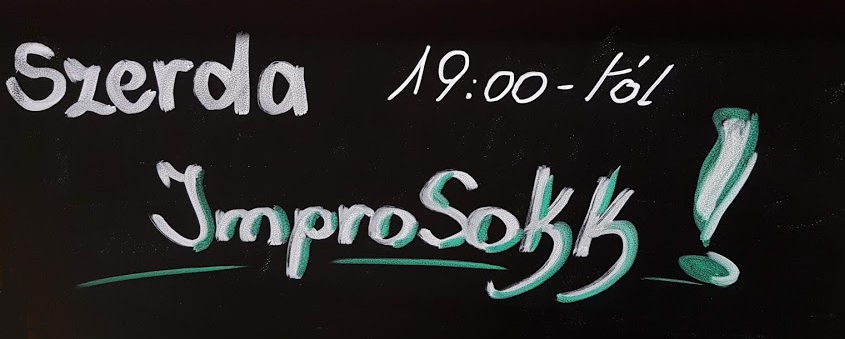 Szerda 19:00-tól
ImproSokk!